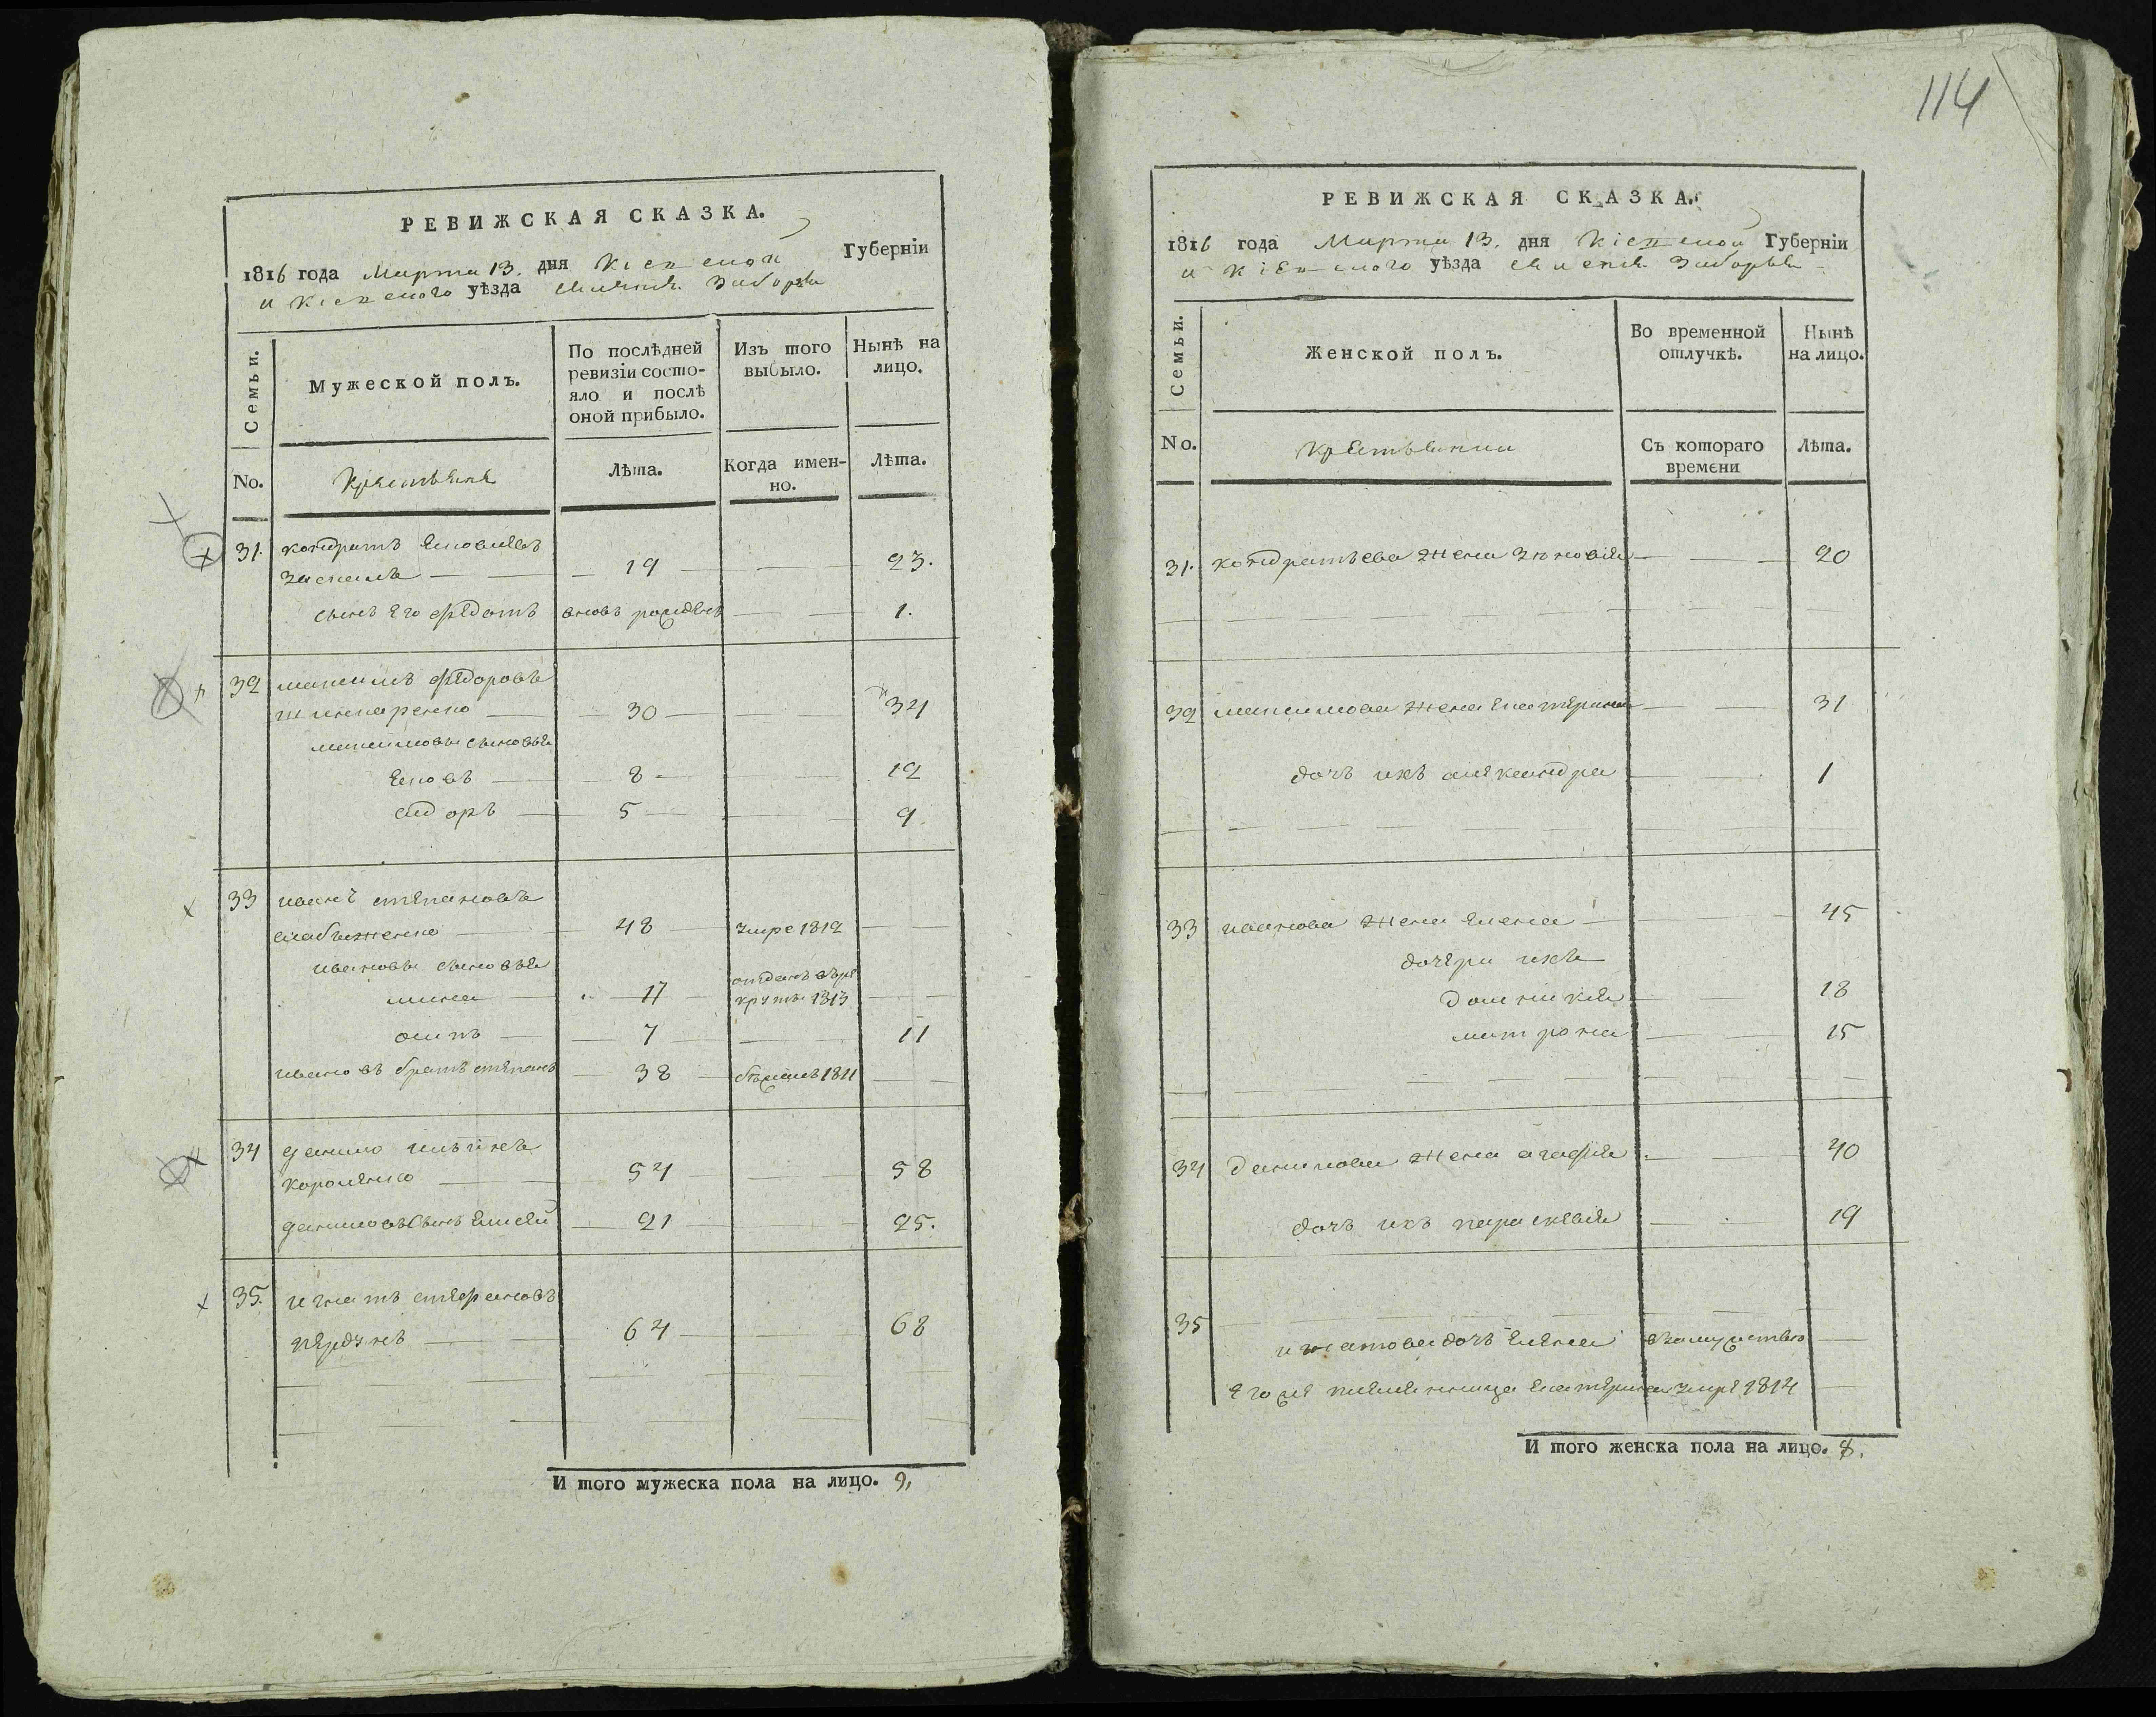 РЕВИЖСКАЯ СКАЗКА.
1816 года Марта 13. дня Кіевской Губерніи
и Кіевского уѣзда Заборья
Семьи.
Мужеской полъ.
По послѣдней ревизіи состояло и послѣ оной прибыло.
Изъ того выбыло.
Нынѣ на лицо.
No.
Крестьяне
Лѣта.
Когда именно.
Лѣта.
31. кондратъ Яковлевъ
19 23.
сынъ Его федотъ вновь рожденъ 1.
32 максимъ федоровъ
30 34
максимовы сыновья
Яковъ 8 12
сидоръ 5 9
33 иванъ степановъ
48 умре 1812
ивановы сыновья
мина 17 отданъ въ рекруты 1813
осипъ 7 11
ивановъ братъ степанъ 38 бѣжалъ 1811
34 данило ильинъ
короленко 54 58
даниловъ сынъ Елисей 21 25.
35. игнатъ стефановъ
64 68
И того мужеска пола на лицо. 9,
114
РЕВИЖСКАЯ СКАЗКА.
1816 года Марта 13. дня Кіевской Губерніи
и Кіевского уѣзда Заборья
Семьи.
Женской полъ.
Во временной отлучкѣ.
Нынѣ на лицо.
No.
Крестьянки
Съ котораго времени
Лѣта.
31. кондратьева жена Зѣновія 20
32 максимова жена Екатерина 31
дочь ихъ александра 1
33 иванова жена Елена 45
дочери ихъ
домникія 18
матрона 15
34 данилова жена агафія 40
дочь ихъ параскевія 19
35
игнатова дочь Елена взамужство
Его же племенница Екатерина умре 1814
И того женска пола на лицо. 8.